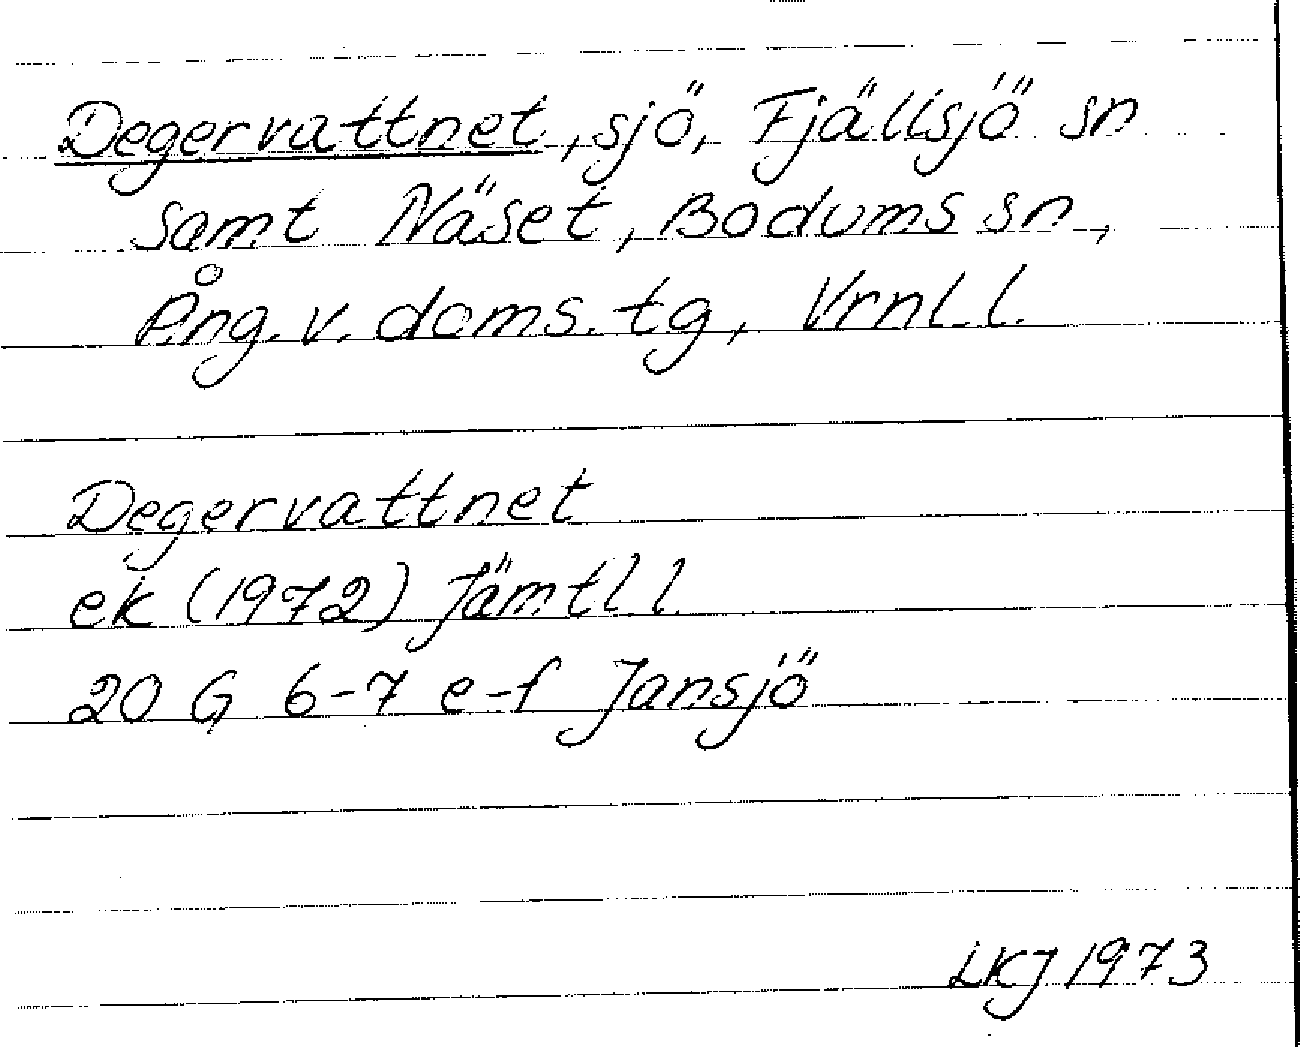 Degervattnet, sjö, Fjällsjö sn
samt Näset, Bodums sn,
Ång. v. doms. tg, Vrnl. l.
Degervattnet
ek (1972) Jämtl l
20 G 6-7 e-f Jansjö
LKJ 1973